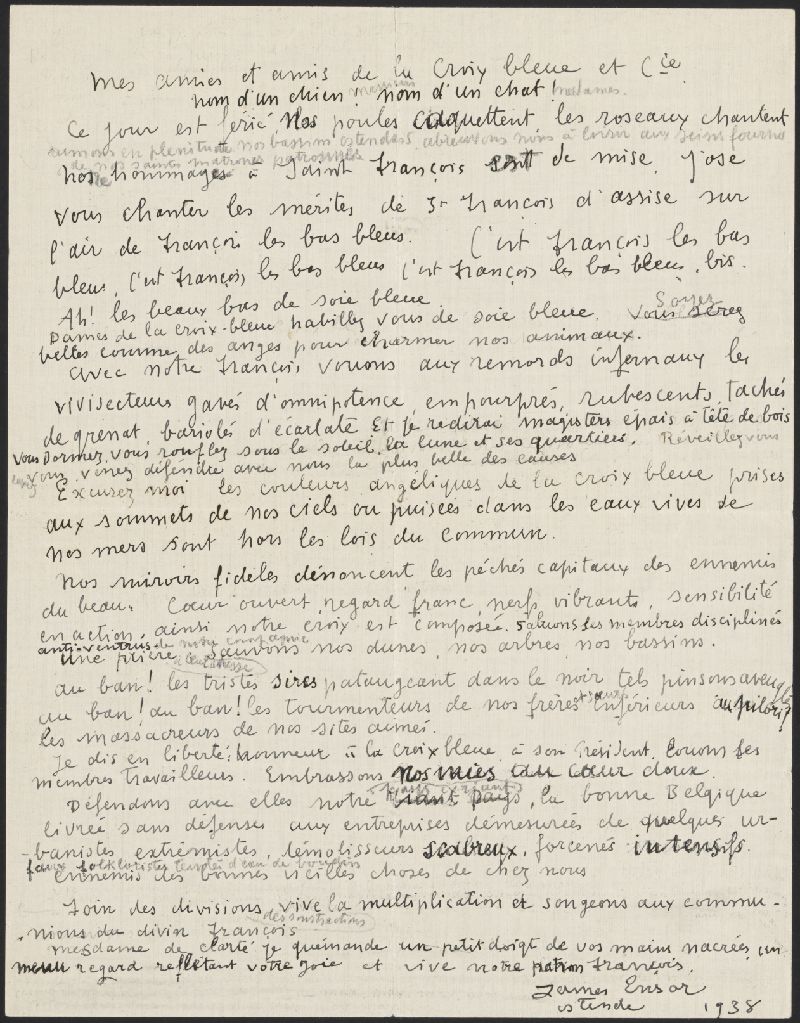 Mes amies et amis de la Croix bleue et Cie
nom d'un chien! nom d'un chat! mesdames.
Ce jour est férié, Nos poules caquettent, les roseaux chantent
aumons en plenitude nos bassins ostendais, abreuvons nous à loisir aux seins
de nos saintes matrones
Nos hommages à Saint François sont de mise, j'ose
vous chanter les mérites de St François d'assise sur
l'air de François les bas bleus. C'est François les bas
bleus, C'est François les bas bleus C'est François les bas bleus, bis.
Ah! les beaux bas de soie bleue
Dames de la croix-bleue habillez vous de soie bleue. Vous serez Soyez
belles comme des anges pour charmer nos animaux.
Avec notre François vouons aux remords infernaux les
vivisecteurs gavés d'omnipotence empourprés, rubescents, tachés
de grenat, bariolé d'écarlate Et je redirai magisters épais à tête de bois
Vous Dormez, vous ronflez sous le soleil, la lune et ses quartiers. Réveillez vous
venez défendre avec nous la plus belle des causes
Excusez moi les couleurs angéliques de la croix bleue prises
aux sommets de nos ciels ou puisées dans les eaux vives de
nos mers sont hors les lois du commun.
Nos miroirs fidèles dénoncent les péchés capitaux des ennemis
du beau. Cœur ouvert, regard franc, nerfs vibrants, sensibilité
en action, ainsi notre croix est composée. Saluons les membres disciplinés
anti-ventrus de notre compagnie
une filière, sauvons nos dunes, nos arbres, nos bassins.
au ban! les tristes sires pataugeant dans le noir tels pinsons aveuglés
au ban! au ban! les tourmenteurs de nos frères et sœurs inférieurs au pilori!
les massacreurs de nos sites aimés.
Je dis en liberté: honneur à la croix bleue à son Président, louons ses
membres travailleurs. Embrassons nos mies au cœur doux.
Défendons avec elles notre riant pays, la bonne Belgique
livrée sans défense aux entreprises démesurées de quelques ur-
banistes extrémistes démolisseurs scabreux, forcenés intensifs.
faux folkloristes d'eau de boudin
Ennemis des bonnes vieilles choses de chez nous
Foin des divisions, vive la multiplication et songeons aux commu-
des soustractions
nions du divin François
mesdame de clarté je quémande un petit doigt de vos mains nacrées, un
menu regard reflétant votre joie et vive notre patron François.
James Ensor
ostende 1938